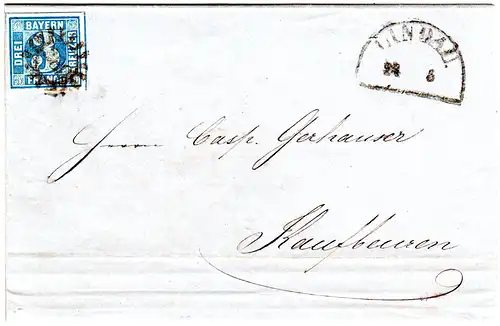 BAYERN
DREI
KREUZER
FRANCO
LINDAU.
8
Herrn Casp. Gerhauser
Kaufbeuren